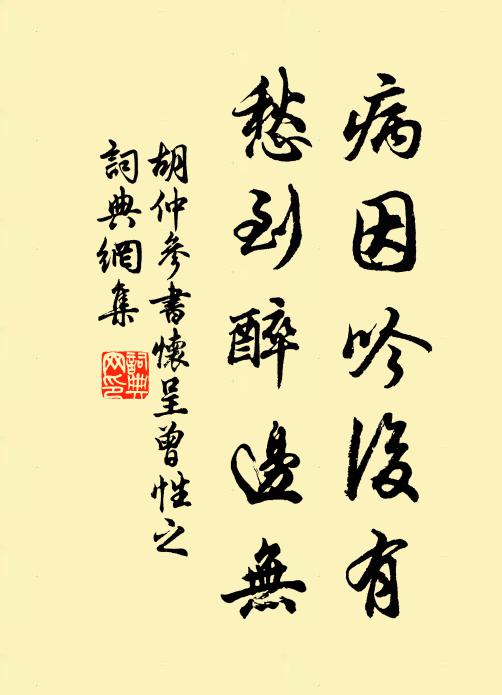 病因吟後有
愁到醉邊無
胡仲參書懷呈曾性之
詞典網集
詞典網印